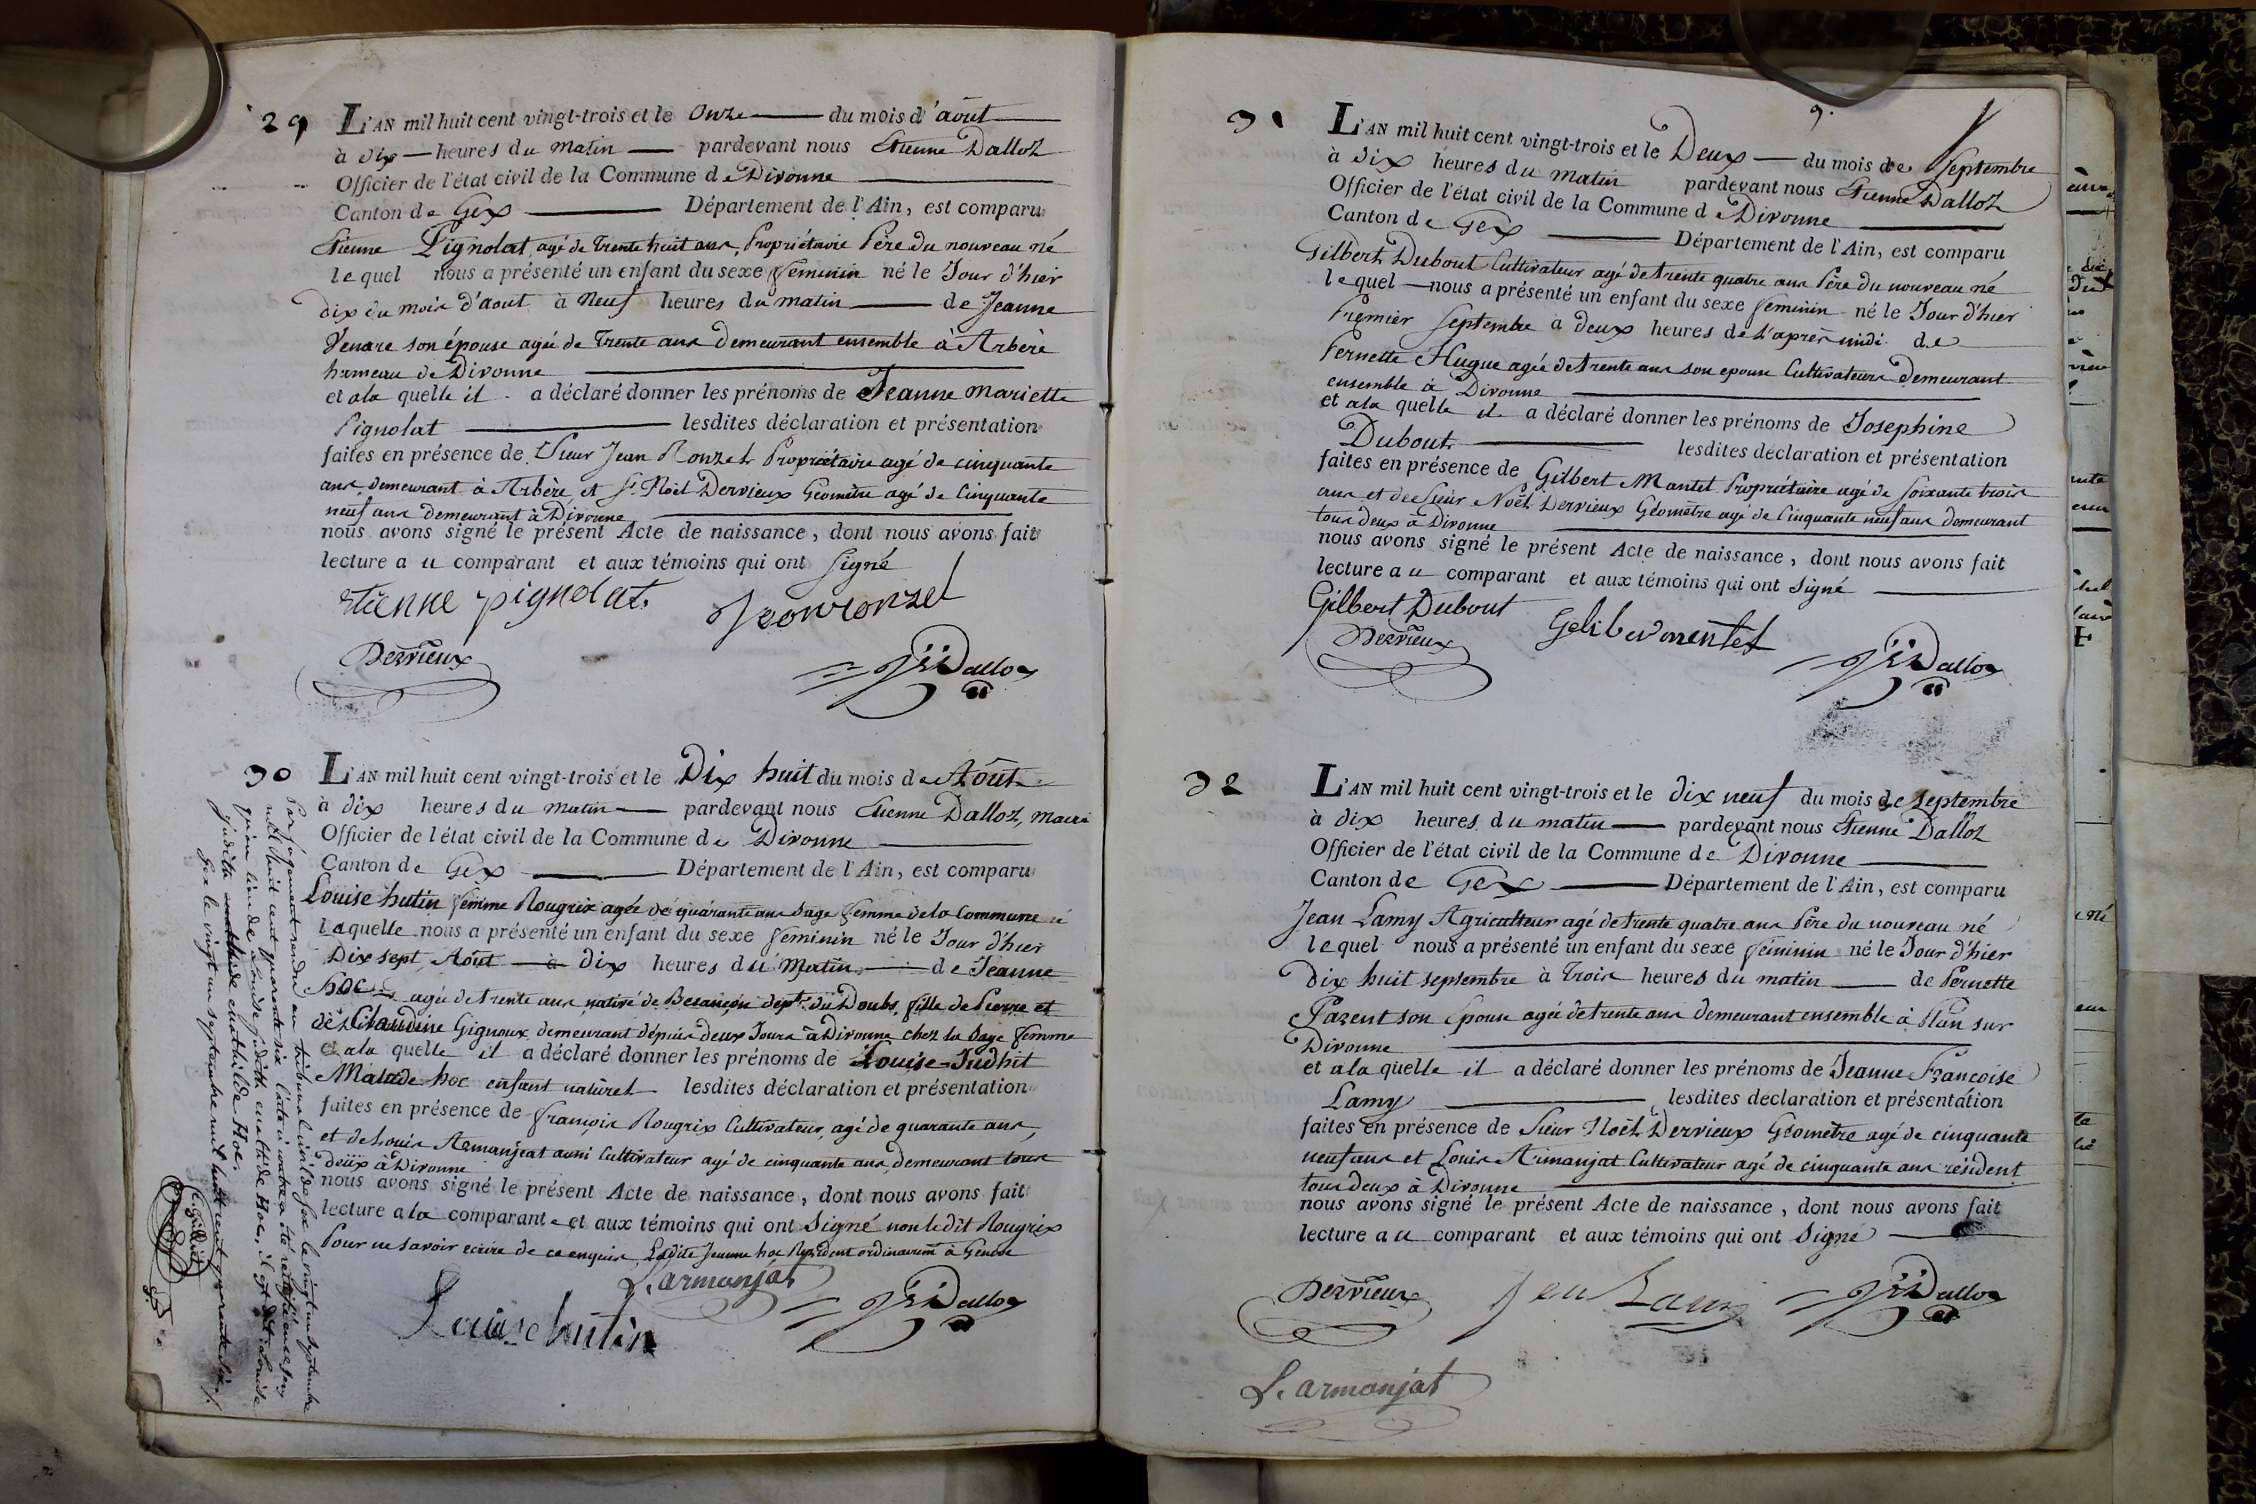 29
L'AN mil huit cent vingt-trois et le Onze du mois d'aout
à dix heures du matin pardevant nous Etienne Dalloz
Officier de l'état civil de la Commune de Divonne
Canton de Gex Département de l'Ain, est comparu
Etienne Pignolat, agé de Trente huit ans, Propriétaire Père du nouveau né
lequel nous a présenté un enfant du sexe feminin né le Jour d'hier
dix du mois d'aout à Neuf heures du matin de Jeanne
son épouse agée de Trente ans demeurant ensemble à Arbère
hameau de Divonne
et a la quelle il a déclaré donner les prénoms de Jeanne Mariette
Pignolat lesdites déclaration et présentation
faites en présence de Sieur Jean Ronzet Propriétaire agé de cinquante
ans, demeurant à Arbère, et Sr. Noël Dervieux Géomètre agé de Cinquante
neuf ans demeurant à Divonne
nous avons signé le présent Acte de naissance, dont nous avons fait
lecture au comparant et aux témoins qui ont Signé
etienne pignolat
Dervieux
Dalloz
30
L'AN mil huit cent vingt-trois et le Dix huit du mois de Aôut
à dix heures du matin pardevant nous Etienne Dalloz, maire
Officier de l'état civil de la Commune de Divonne
Canton de Gex Département de l'Ain, est comparu
Louise hutin femme Rougrix agée de quarante ans sage femme de la Commune
Laquelle nous a présenté un enfant du sexe feminin né le Jour d'hier
Dix sept Aôut à dix heures du Matin de Jeanne
hoc agée de trente ans, native de Besançon dept. du Doubs, fille de Pierre et
de Claudine Gignoux demeurant depuis deux Jours à Divonne chez la Sage femme
et a la quelle il a déclaré donner les prénoms de Louise-Judhit
hoc enfant naturel lesdites déclaration et présentation
faites en présence de françois Rougrix Cultivateur, agé de quarante ans,
et de Louis Armanjeat aussi Cultivateur agé de cinquante ans, demeurant tous
deux à Divonne
nous avons signé le présent Acte de naissance, dont nous avons fait
lecture a la comparante et aux témoins qui ont Signé non le dit Rougrix
Pour ne savoir ecrire de ce enquis, Ladite Jeanne hoc Résident ordinairemt à Genève
L. armonjat
Louise hutin
Dalloz
Par jugement rendu au tribunal civil de Gex le vingt un septembre
mil huit cent quarante six l'acte ci contre a été rectifié en ce sens
qu'au lieu de Louise Judith Hoc, il est dit: Louise
Judith mathilde Hoc.
Gex le vingt un septembre mil huit cent quarante six.
31
9.
L'AN mil huit cent vingt-trois et le Deux du mois de Septembre
à dix heures du matin pardevant nous Etienne Dalloz
Officier de l'état civil de la Commune de Divonne
Canton de Gex Département de l'Ain, est comparu
Gilbert Dubout Cultivateur agé de trente quatre ans Père du nouveau né
lequel nous a présenté un enfant du sexe feminin né le Jour d'hier
Premier Septembre à deux heures de l'après midi de
Pernette Hugue agée de trente ans son epouse Cultivateurs demeurant
ensemble à Divonne
et a la quelle il a déclaré donner les prénoms de Josephine
Dubout lesdites déclaration et présentation
faites en présence de Gilbert Mantet Propriétaire agé de Soixante trois
ans et de Sieur Noël Dervieux Géomètre agé de Cinquante neuf ans demeurant
tous deux à Divonne
nous avons signé le présent Acte de naissance, dont nous avons fait
lecture au comparant et aux témoins qui ont Signé
Gilbert Dubout
Dervieux
Dalloz
32
L'AN mil huit cent vingt-trois et le dix neuf du mois de Septembre
à dix heures du matin pardevant nous Etienne Dalloz
Officier de l'état civil de la Commune de Divonne
Canton de Gex Département de l'Ain, est comparu
Jean Lamy Agriculteur agé de trente quatre ans Père du nouveau né
lequel nous a présenté un enfant du sexe féminin né le Jour d'hier
dix huit septembre à Trois heures du matin de Pernette
Parent son Epouse agée de trente ans demeurant ensemble à Plan sur
Divonne
et a la quelle il a déclaré donner les prénoms de Jeanne Françoise
Lamy lesdites déclaration et présentation
faites en présence de Sieur Noël Dervieux Géomètre agé de cinquante
neuf ans et Louis Armanjat Cultivateur agé de cinquante ans résident
tous deux à Divonne
nous avons signé le présent Acte de naissance, dont nous avons fait
lecture au comparant et aux témoins qui ont Signé
Dervieux
Jean Lamy
Dalloz
L. armonjat